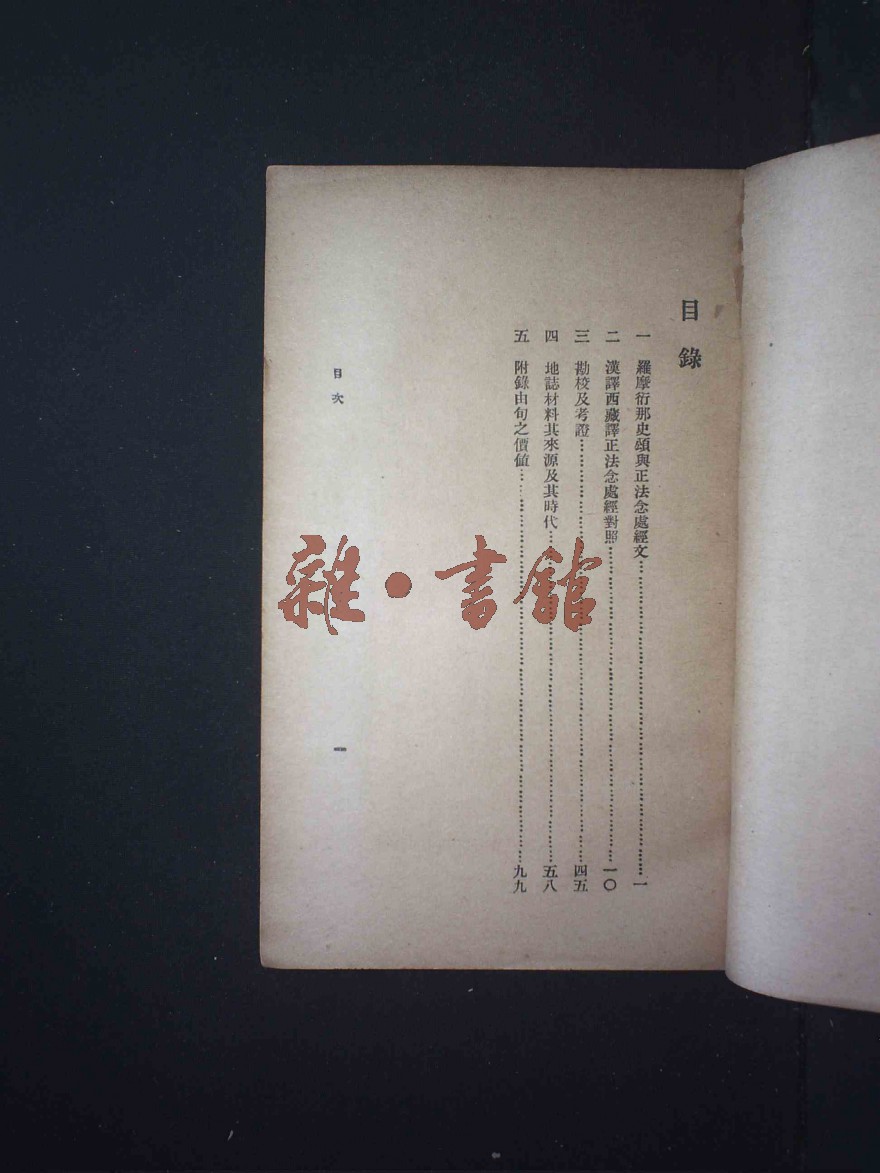 目錄
一　羅摩衍那史頌與正法念處經文……一
二　漢譯西藏譯正法念處經對照……一〇
三　勘校及考證……四五
四　地誌材料其來源及其時代……五八
五　附錄由旬之價値……九九
目次
一
雜·書館